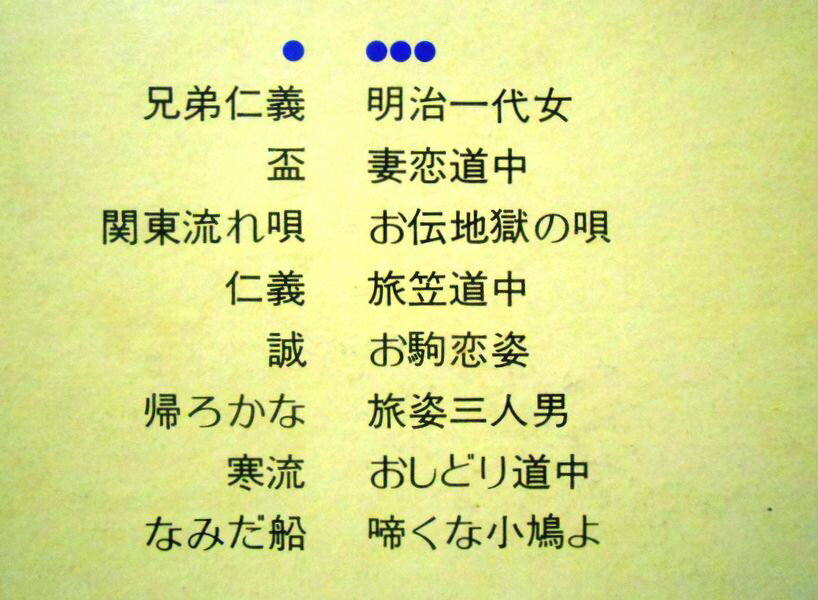 ● ●●●
兄弟仁義 明治一代女
盃 妻恋道中
関東流れ唄 お伝地獄の唄
仁義 旅笠道中
誠 お駒恋姿
帰ろかな 旅姿三人男
寒流 おしどり道中
なみだ船 啼くな小鳩よ